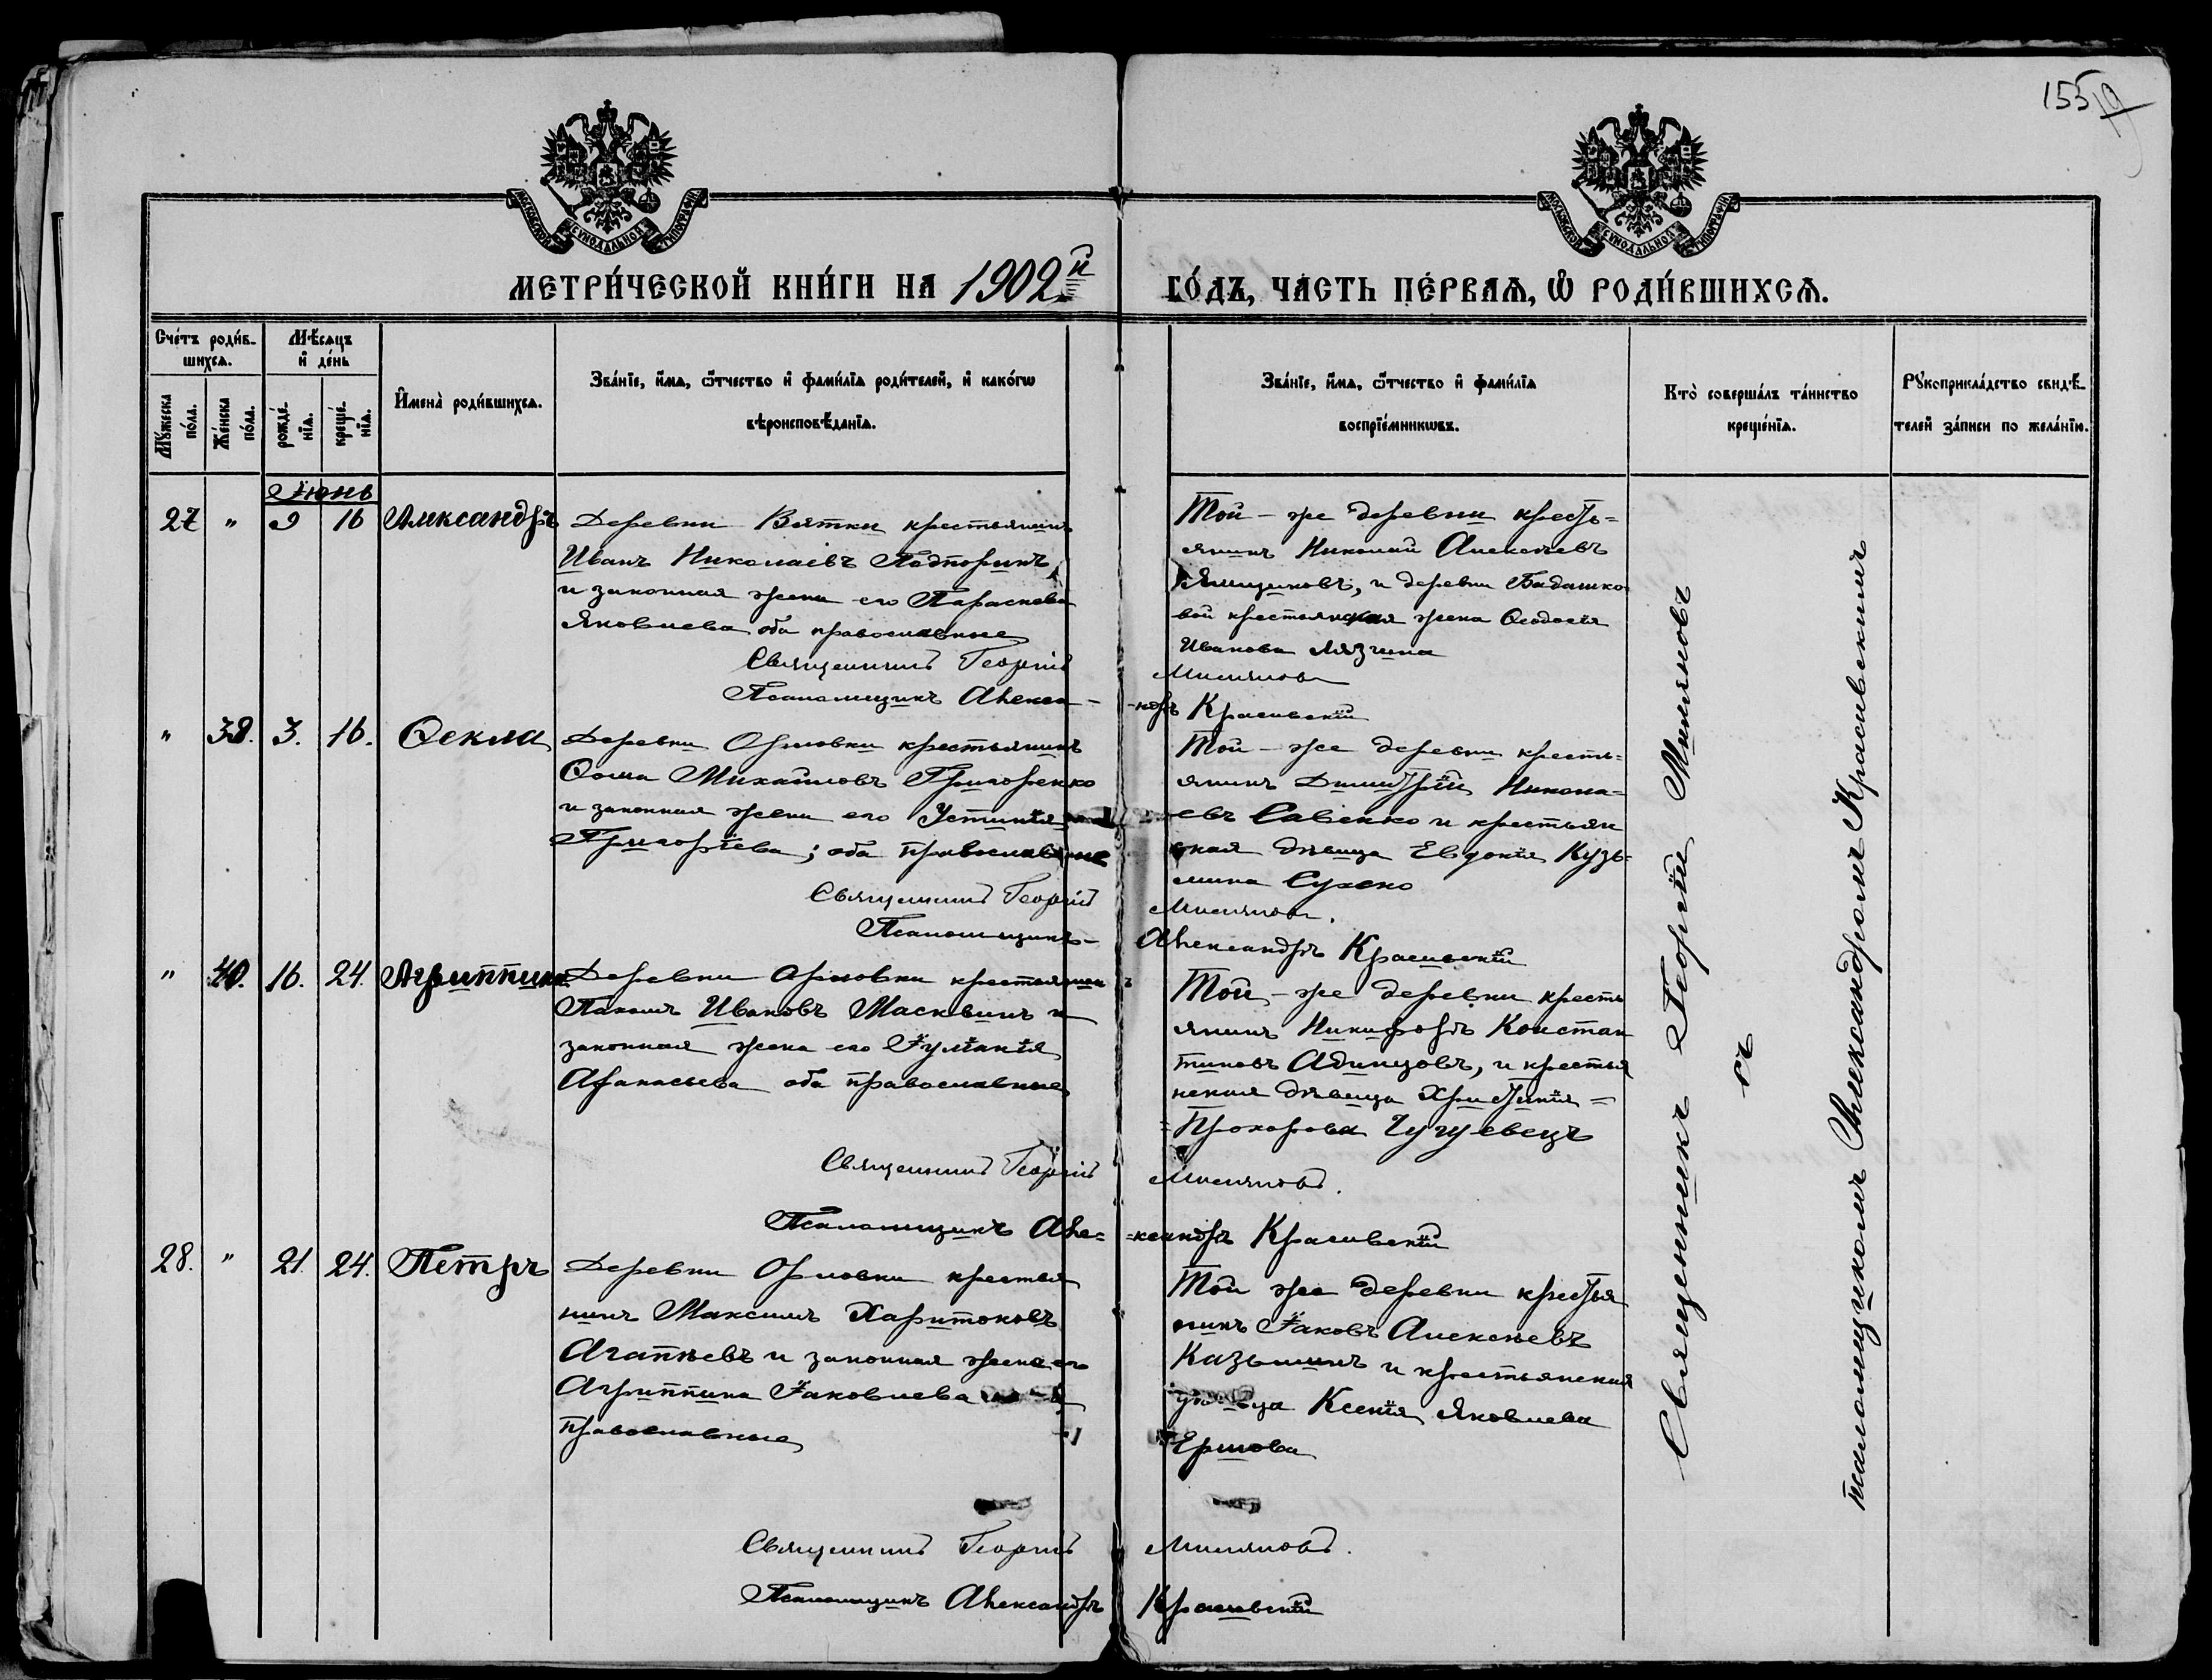 155
19
МОСКОВСКОЙ СѴНОДАЛЬНОЙ ТИПОГРАФІИ
МОСКОВСКОЙ СѴНОДАЛЬНОЙ ТИПОГРАФІИ
МЕТРИ́ЧЕСКОЙ КНИ́ГИ НА 1902й ГО́ДЪ, ЧА́СТЬ ПЕ́РВАѦ, Ѽ РОДИ́ВШИХСѦ.
Сче́тъ роди́вшихсѧ.
Мꙋ́жеска по́ла.
Же́нска по́ла.
Мѣ́сѧцъ и҆ де́нь
рожде́нїѧ.
креще́нїѧ.
И҆мена̀ роди́вшихсѧ.
Зва́нїе, и҆́мѧ, ѻ҆́тчество и҆ фами́лїѧ роди́телей, и҆ како́гѡ
вѣроисповѣ́данїѧ.
Зва́нїе, и҆́мѧ, ѻ҆́тчество и҆ фами́лїѧ
воспрїе́мникѡвъ.
Кто̀ соверша́лъ та́инство
креще́нїѧ.
Рꙋкоприкла́дство свидѣ́телей за́писи по жела́нїю.
Іюнь
27 " 9 16 Александръ
Деревни Вятки крестьянинъ
Иванъ Николаевъ Подпоринъ
и законная жена его Параскева
Яковлева оба православные
Той-же деревни кресть=
янинъ Николай Алексѣевъ
Ямщиковъ, и деревни Бадашко
вой крестьянская жена Ѳеодосія
Иванова Лязгина
Священникъ Георгій Миляновъ
Псаломщикъ Алекса--ндръ Красивскій
" 38. 3. 16. Ѳекла
Деревни Орловки крестьянинъ
Ѳома Михайловъ Григоренко
и законная жена его Устинія
Григоріева; оба православные
Той-же деревни кресть=
янинъ Димитрій Никола=
евъ Савенко и крестьян
ская дѣвица Евдокія Кузь=
мина Сухено
Священникъ Георгій Миляновъ.
Псаломщикъ- Александръ Красивскій
" 40. 16. 24. Агриппина
Деревни Орловки крестьянинъ
Ивановъ Масквинъ и
законная жена его Іуліанія
Афанасьева оба православные
Той-же деревни кресть
янинъ Никифоръ Констан
тиновъ Адинцовъ, и крестья
нская дѣвица Христинія=
=Прохорова Чугуевецъ
Священникъ Георгій Миляновъ.
Псаломщикъ Але==ксандръ Красивскій
28. " 21. 24. Петръ
Деревни Орловки крестья
нинъ Максимъ Харитоновъ
Агапѣевъ и законная жена его
Агриппина Іаковлева
православные
Той же деревни крестья
нинъ Іаковъ Алексѣевъ
Казьминъ и крестьянская
Ксенія Яковлева
Ершова
Священникъ Георгій Миляновъ.
Псаломщикъ Александръ Красивскій
Священникъ Георгій Миляновъ
съ
псаломщикомъ Александромъ Красивскимъ